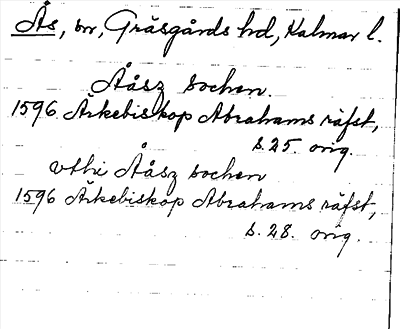 Ås, sn, Gräsgårds hd, Kalmar l.
Ååsz sochen.
1596 Ärkebiskop Abrahams räfst,
s. 25. orig.
vthi Ååsz sochen
1596 Ärkebiskop Abrahams räfst,
s. 28. orig.